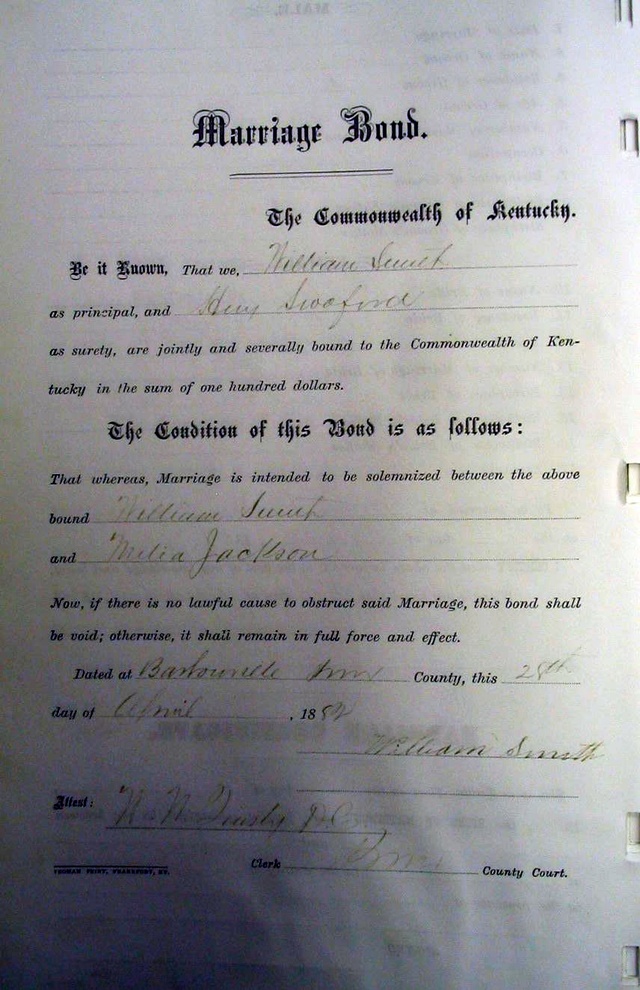 Marriage Bond.
The Commonwealth of Kentucky.
Be it Known, That we, William Smith
as principal, and Swoford
as surety, are jointly and severally bound to the Commonwealth of Ken-
tucky in the sum of one hundred dollars.
The Condition of this Bond is as follows:
That whereas, Marriage is intended to be solemnized between the above
bound William Smith
and Milia Jackson
Now, if there is no lawful cause to obstruct said Marriage, this bond shall
be void; otherwise, it shall remain in full force and effect.
Dated at Barbourville Knox County, this 28th
day of April, 188
William Smith
Attest:
Clerk Knox County Court.
YEOMAN PRINT, FRANKFORT, KY.